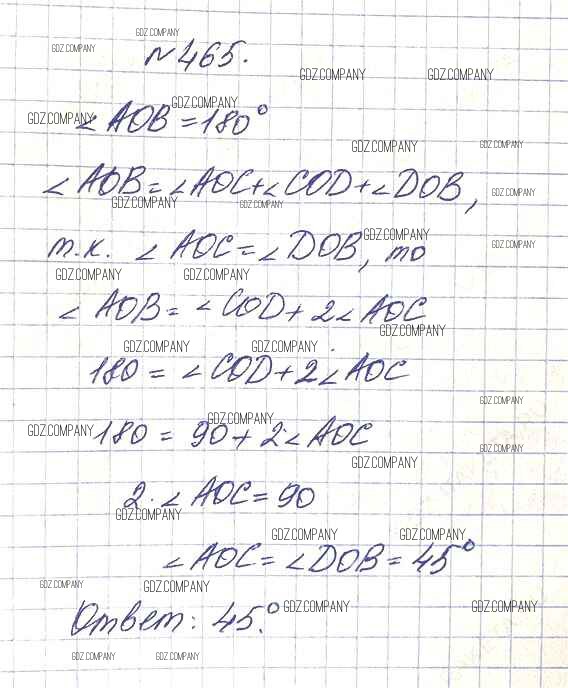 GDZ.COMPANY
GDZ.COMPANY
№465.
GDZ.COMPANY GDZ.COMPANY
GDZ.COMPANY GDZ.COMPANY
∠AOB=180°
GDZ.COMPANY GDZ.COMPANY
∠AOB=∠AOC+∠COD+∠DOB,
GDZ.COMPANY GDZ.COMPANY GDZ.COMPANY
т.к. ∠AOC=∠DOB, то
GDZ.COMPANY GDZ.COMPANY
GDZ.COMPANY GDZ.COMPANY
∠AOB=∠COD+2∠AOC
GDZ.COMPANY
GDZ.COMPANY GDZ.COMPANY
180=∠COD+2∠AOC
GDZ.COMPANY
GDZ.COMPANY
GDZ.COMPANY
180=90+2·∠AOC
GDZ.COMPANY
GDZ.COMPANY
2·∠AOC=90
GDZ.COMPANY
GDZ.COMPANY GDZ.COMPANY
∠AOC=∠DOB=45°
GDZ.COMPANY GDZ.COMPANY
Ответ: 45°.
GDZ.COMPANY GDZ.COMPANY
GDZ.COMPANY GDZ.COMPANY